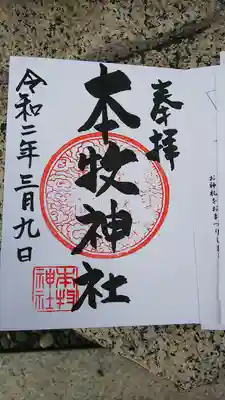 奉拝
本牧神社
令和二年三月九日
本牧
神社
お神札をおまつりしま